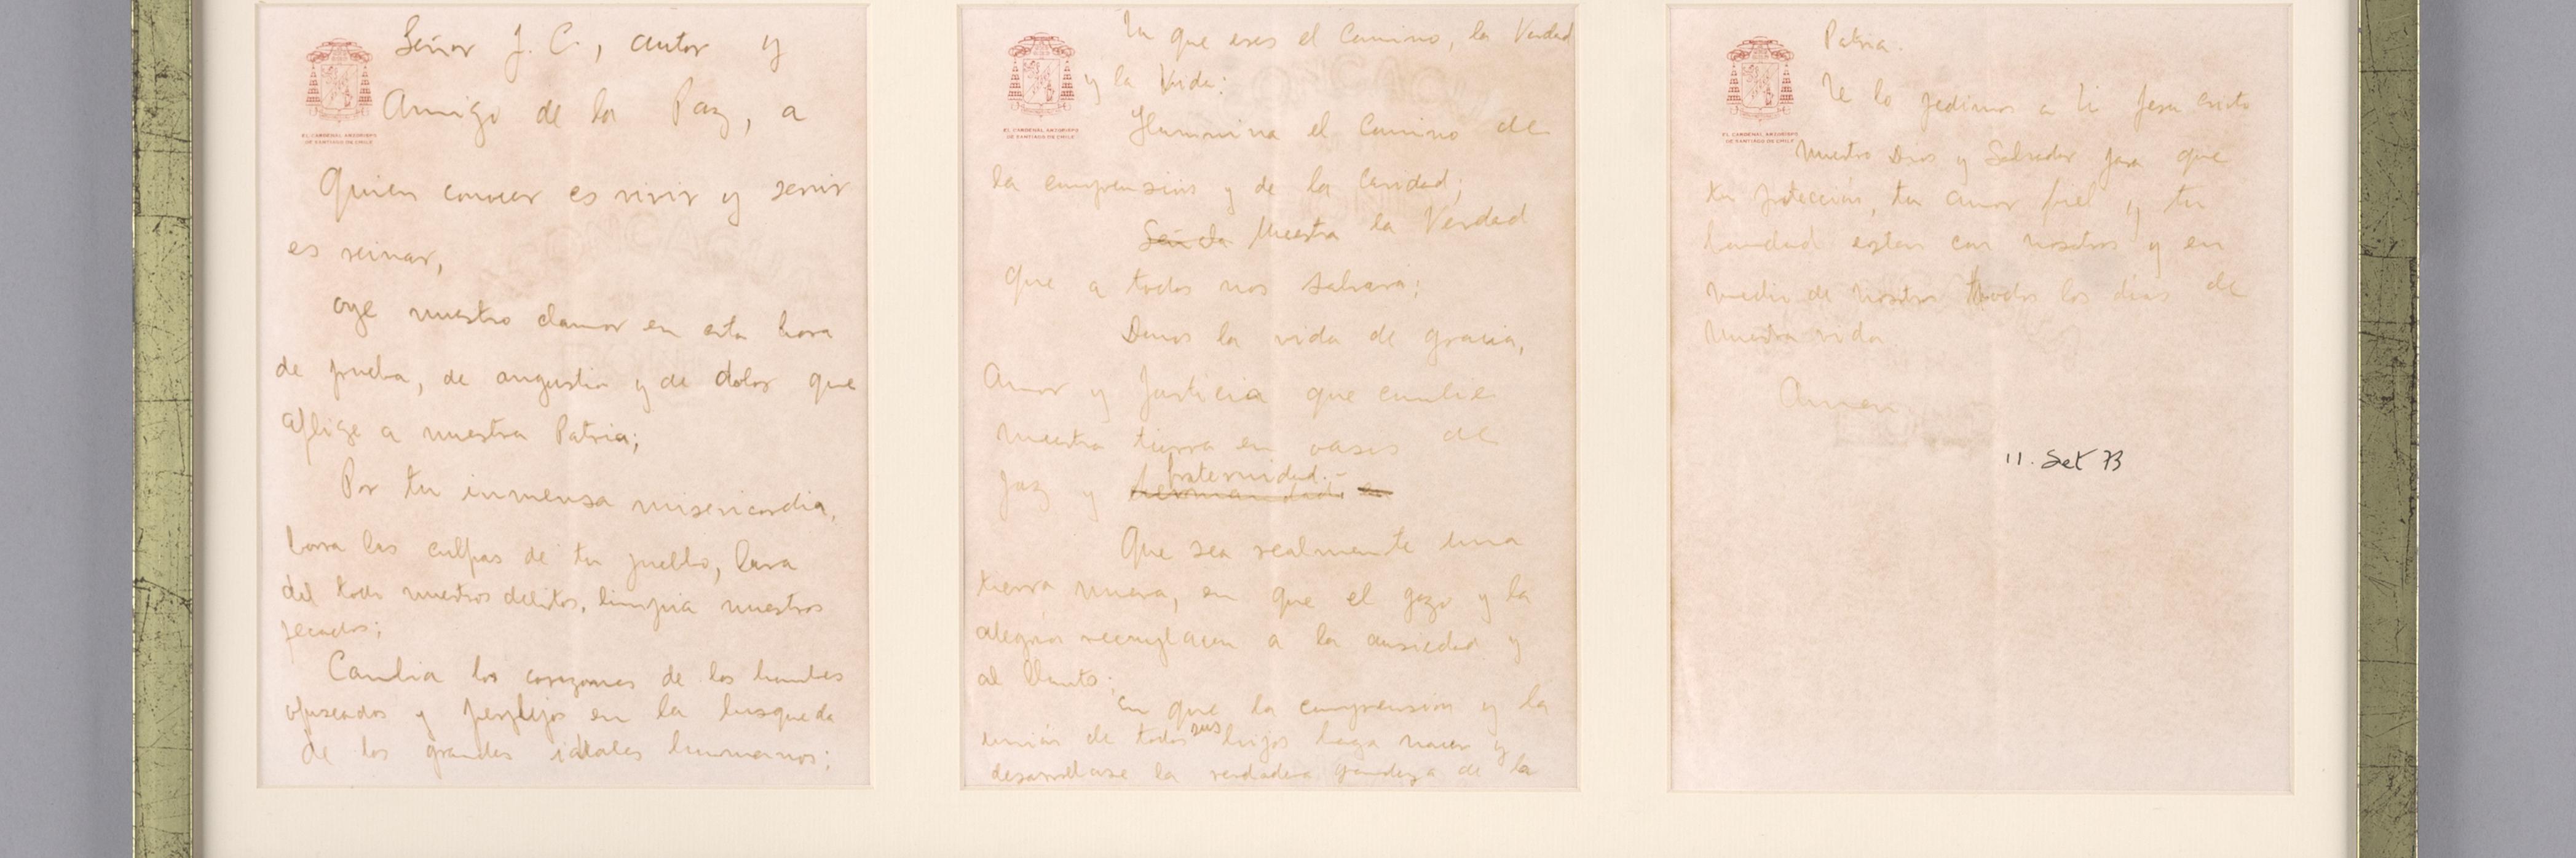 EL CARDENAL ARZOBISPO
DE SANTIAGO DE CHILE
Señor J. C., autor y
Amigo de la Paz, a
Quien conocer es vivir y servir
es reinar,
oye nuestro clamor en esta hora
de prueba, de angustia y de dolor que
aflige a nuestra Patria;
Por tu inmensa misericordia,
borra las culpas de tu pueblo, lava
del todo nuestros delitos, limpia nuestros
pecados;
Cambia los corazones de los hombres
ofuscados y perplejos en la busqueda
de los grandes ideales humanos;
EL CARDENAL ARZOBISPO
DE SANTIAGO DE CHILE
Tu que eres el Camino, la Verdad
y la Vida:
Ilumina el Camino de
la comprension y de la Caridad;
Senda Muestra la Verdad
que a todos nos salvara;
Danos la vida de gracia,
Amor y Justicia que cambie
nuestra tierra en oasis de
fraternidad.-
paz y hermandad. en
Que sea realmente una
tierra nueva, en que el gozo y la
alegria reemplacen a la ansiedad y
al llanto;
en que la comprension y la
union de todos sus hijos haga nacer y
desarrollarse la verdadera grandeza de la
EL CARDENAL ARZOBISPO
DE SANTIAGO DE CHILE
Patria.
Te lo pedimos a ti Jesu cristo
Nuestro Dios y Salvador para que
tu proteccion, tu amor fiel y tu
bondad esten con nosotros y en
medio de nosotros todos los dias de
nuestra vida
Amen
11. Set 73